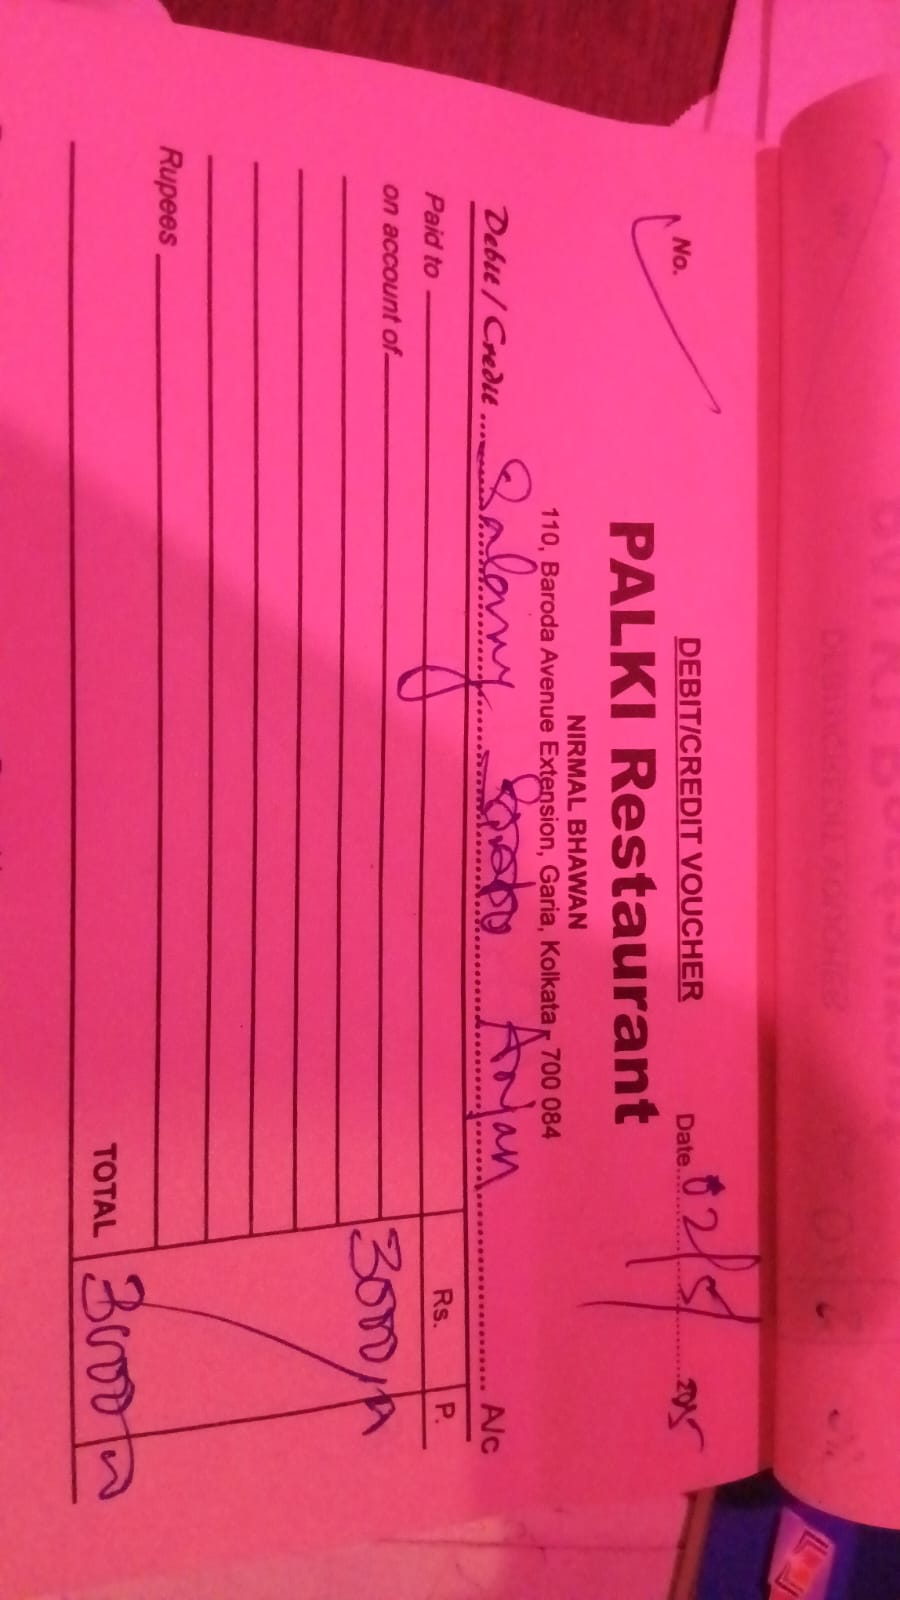 DEBIT/CREDIT VOUCHER
No. Date 02/5/ 2025
PALKI Restaurant
NIRMAL BHAWAN
110, Baroda Avenue Extension, Garia, Kolkata - 700 084
Debit / Credit ... Salary Aryan A/c
Paid to Rs. P.
on account of 3000/-
Rupees
TOTAL 3000/-